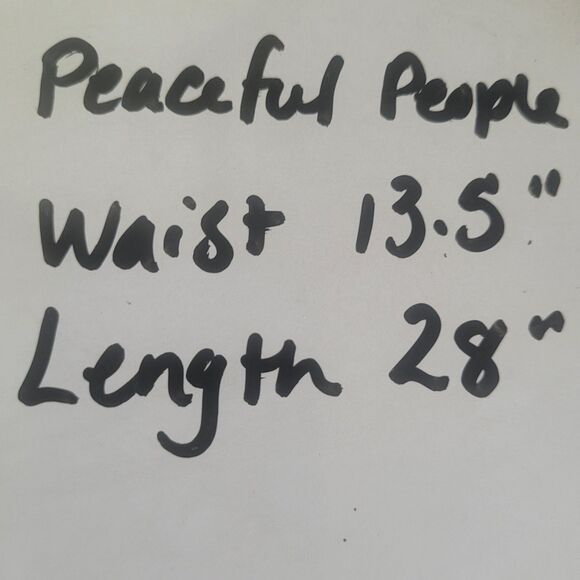 Peaceful People
Waist 13.5"
Length 28"